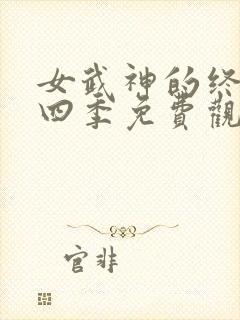 女武神的终
四季免費觀
官非